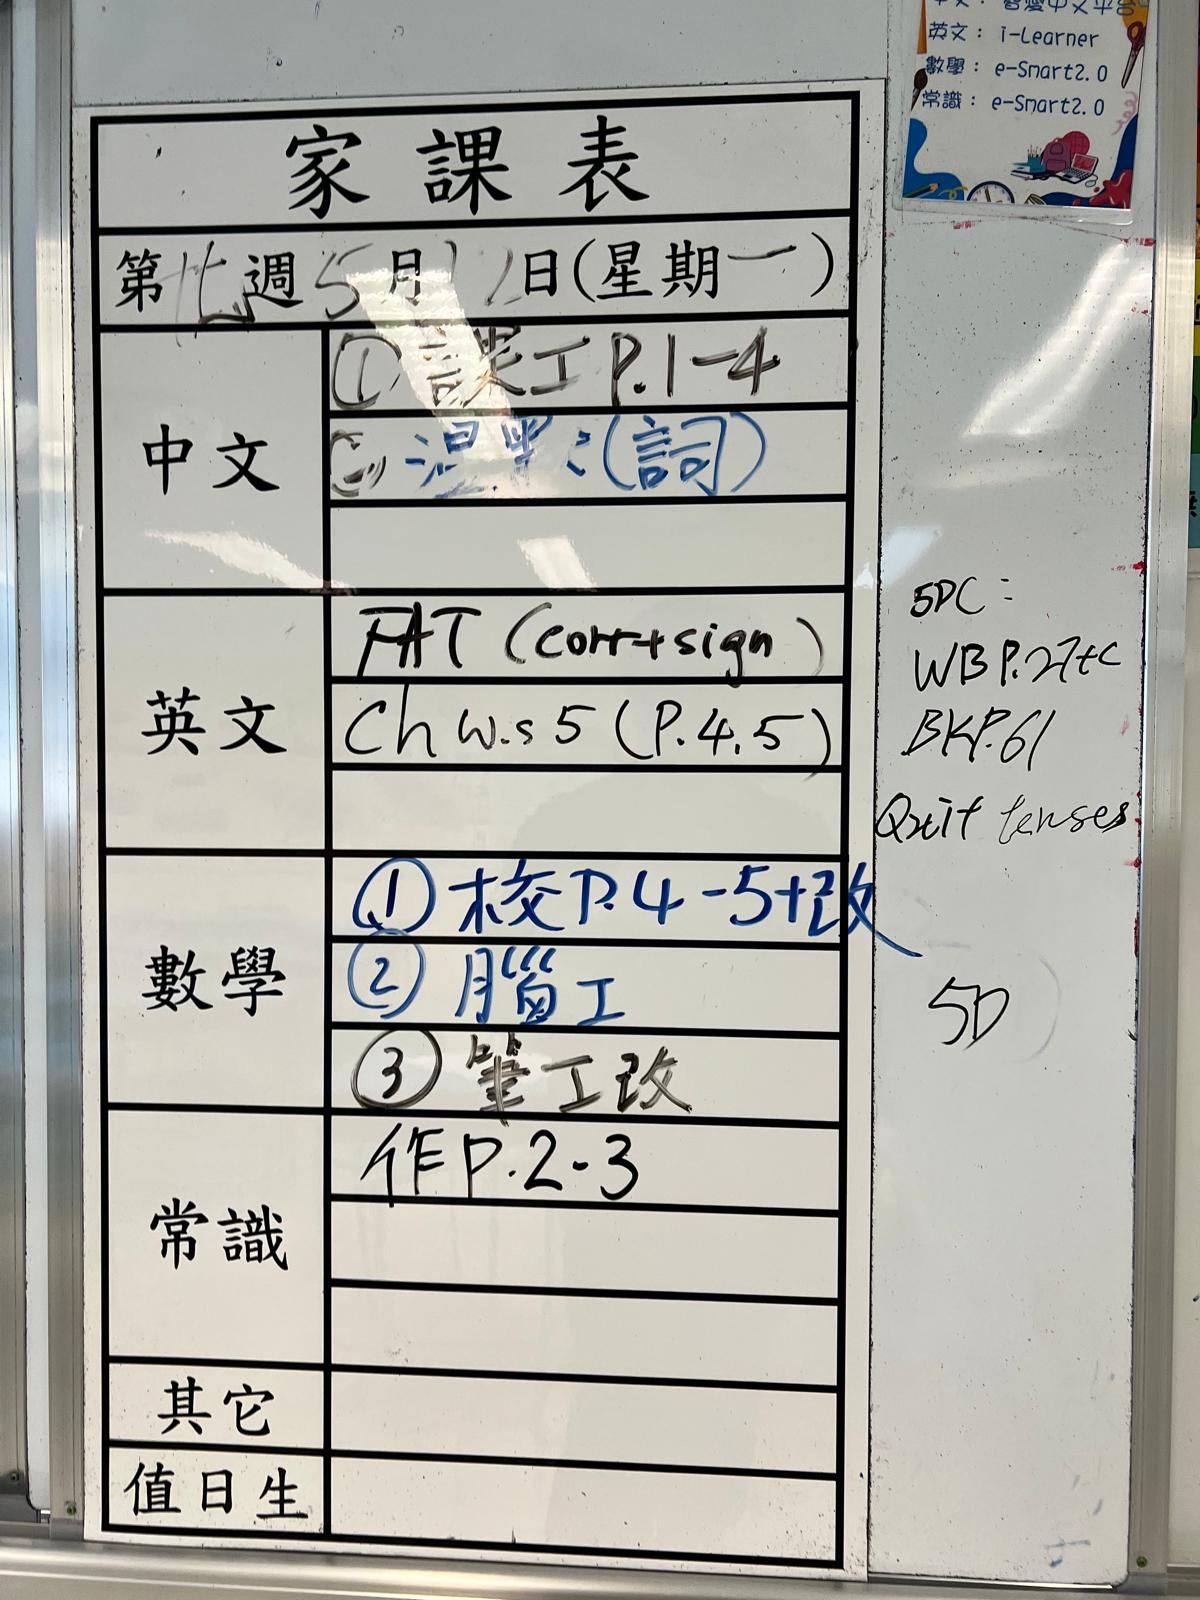 智愛中文平台
英文： i-Learner
數學： e-Smart2.0
常識： e-Smart2.0
家課表
第 週5月12日(星期一)
中文
① 工P.1-4
溫 (詞)
英文
FAT (corr+sign)
Ch W.s 5 (P.4,5)
數學
① 校P.4-5+改
② 腦工
③ 筆工改
常識
作P.2-3
其它
值日生
WB P.27+C
BKP.61
tenses
5D